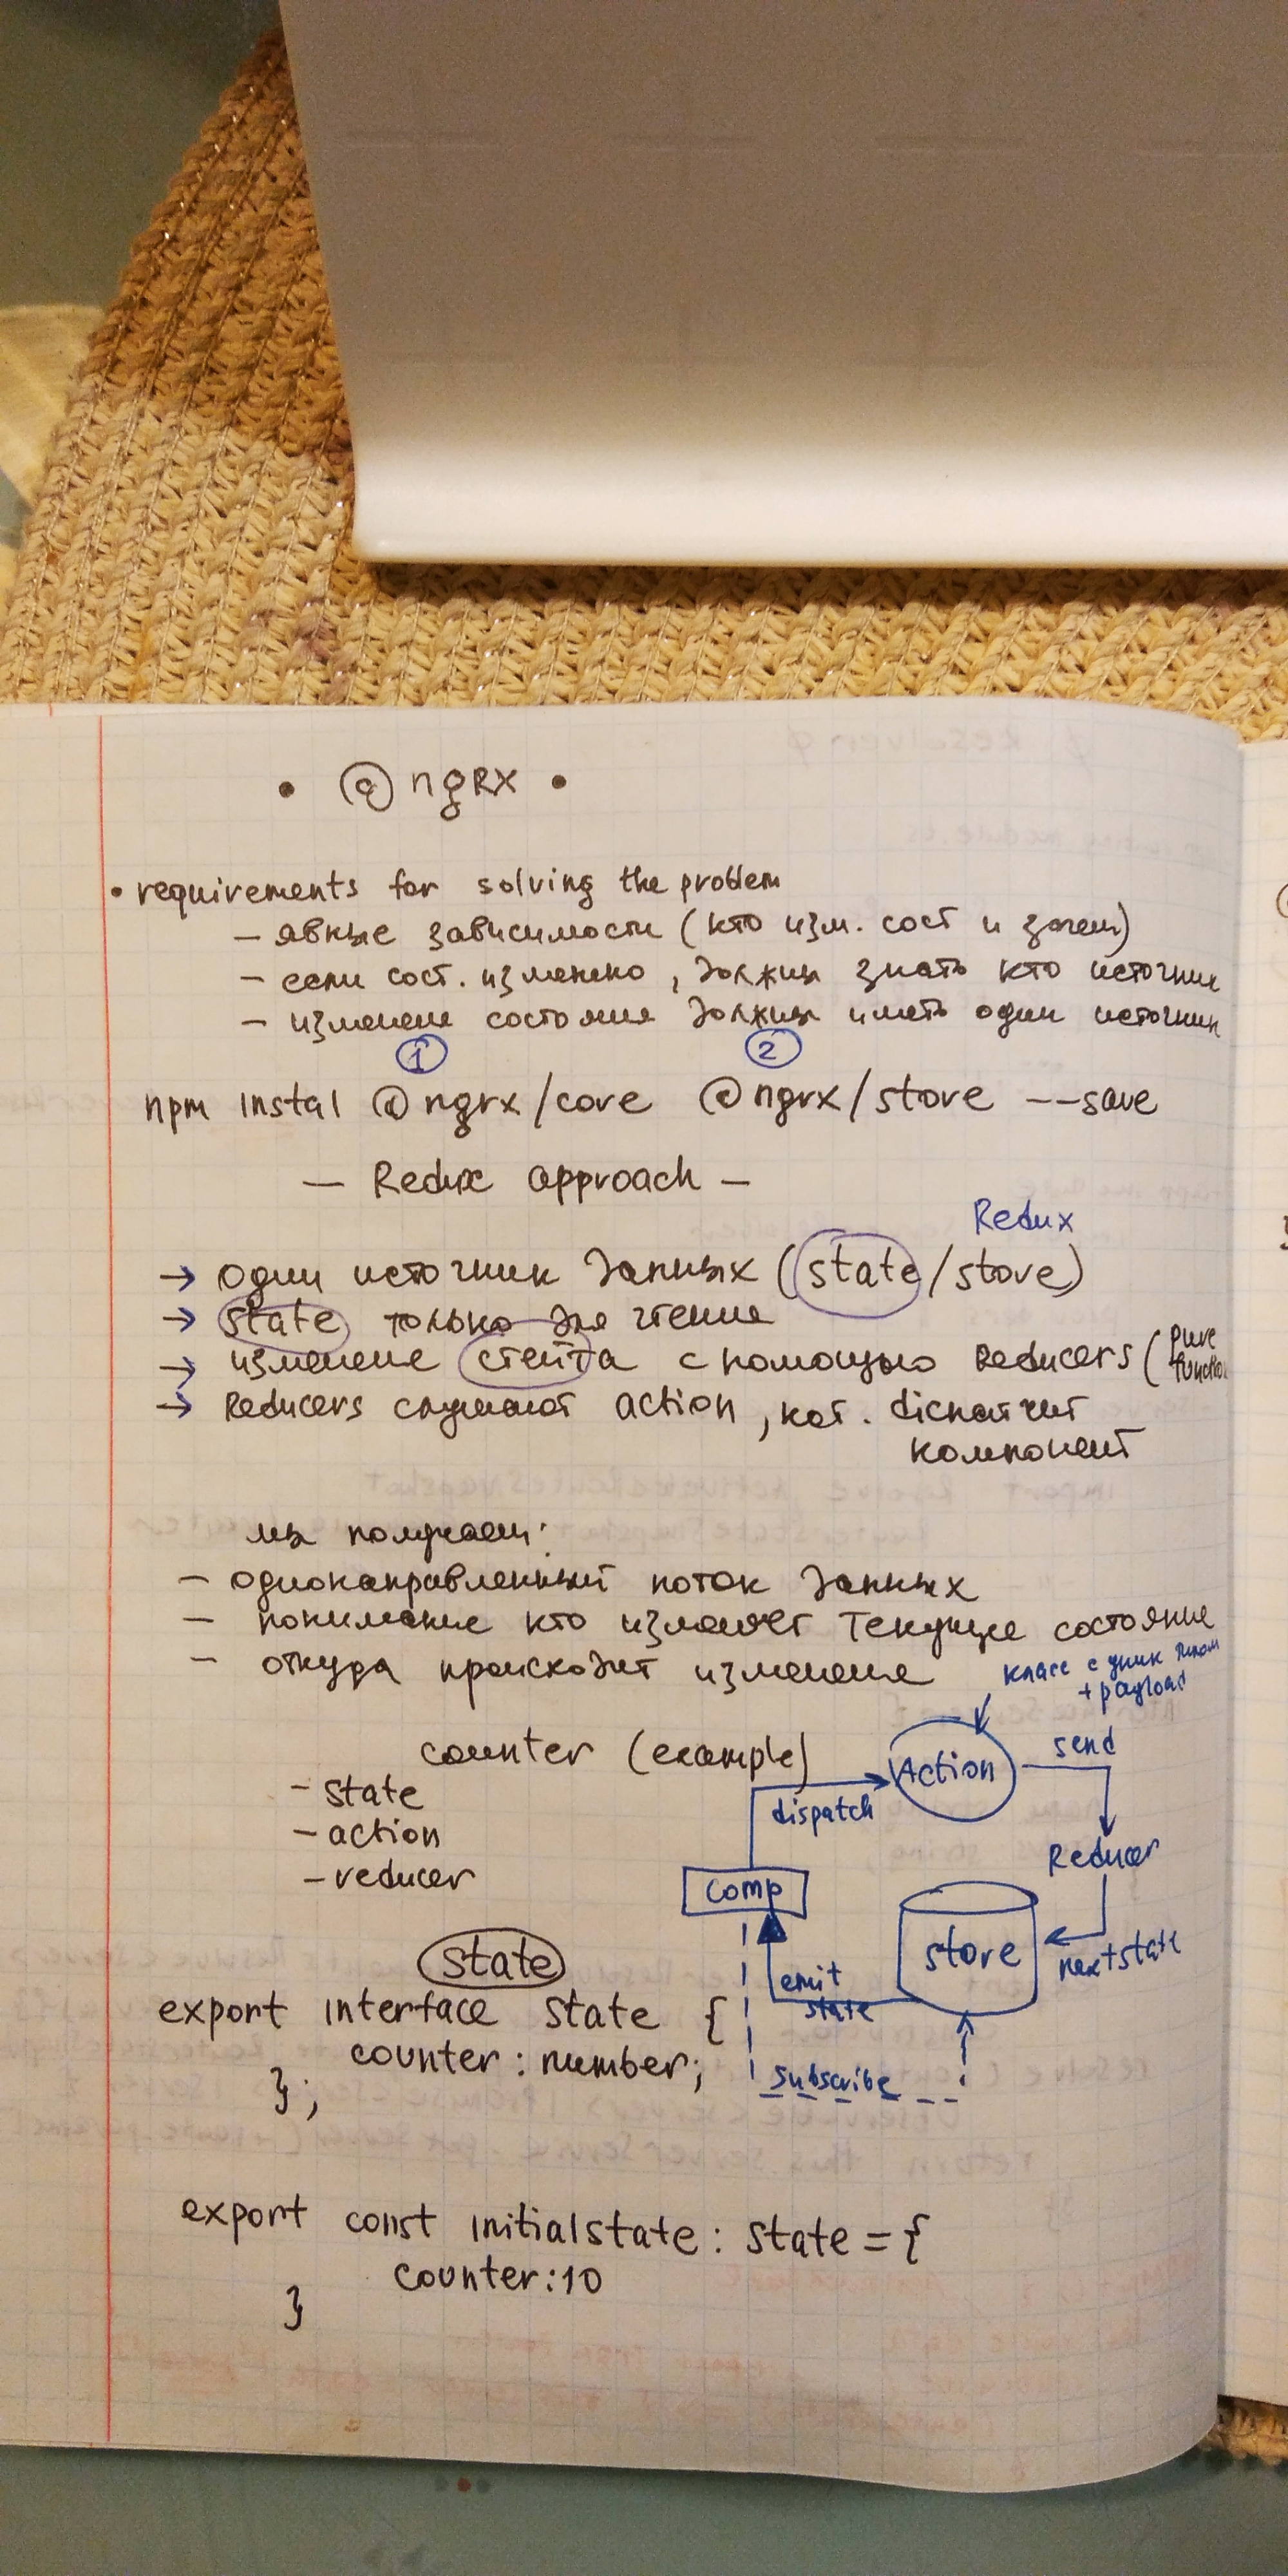 • @ngrx •
• requirements for solving the problem
— явные зависимости (кто изм. сост и зачем)
— если сост. изменено, должны знать кто источник
— изменене состояния должны иметь один источник
1 2
npm instal @ngrx/core @ngrx/store --save
— Redux approach —
Redux
→ один источник данных (state/store)
→ state только для чтения
→ изменене стейта с помощью Reducers (pure
function
→ Reducers слушают action, кот. диспатчит
компонент
мы получаем:
— однонаправленный поток данных
— понимание кто изменяет текущее состояние
— откуда происходит изменене
класс с уник типом
+ payload
counter (example)
- state
- action
- reducer
Action
send
dispatch
Reducer
comp
store
nextstate
emit
state
subscribe
state
export interface state {
counter: number;
};
export const initialstate: state = {
counter:10
}